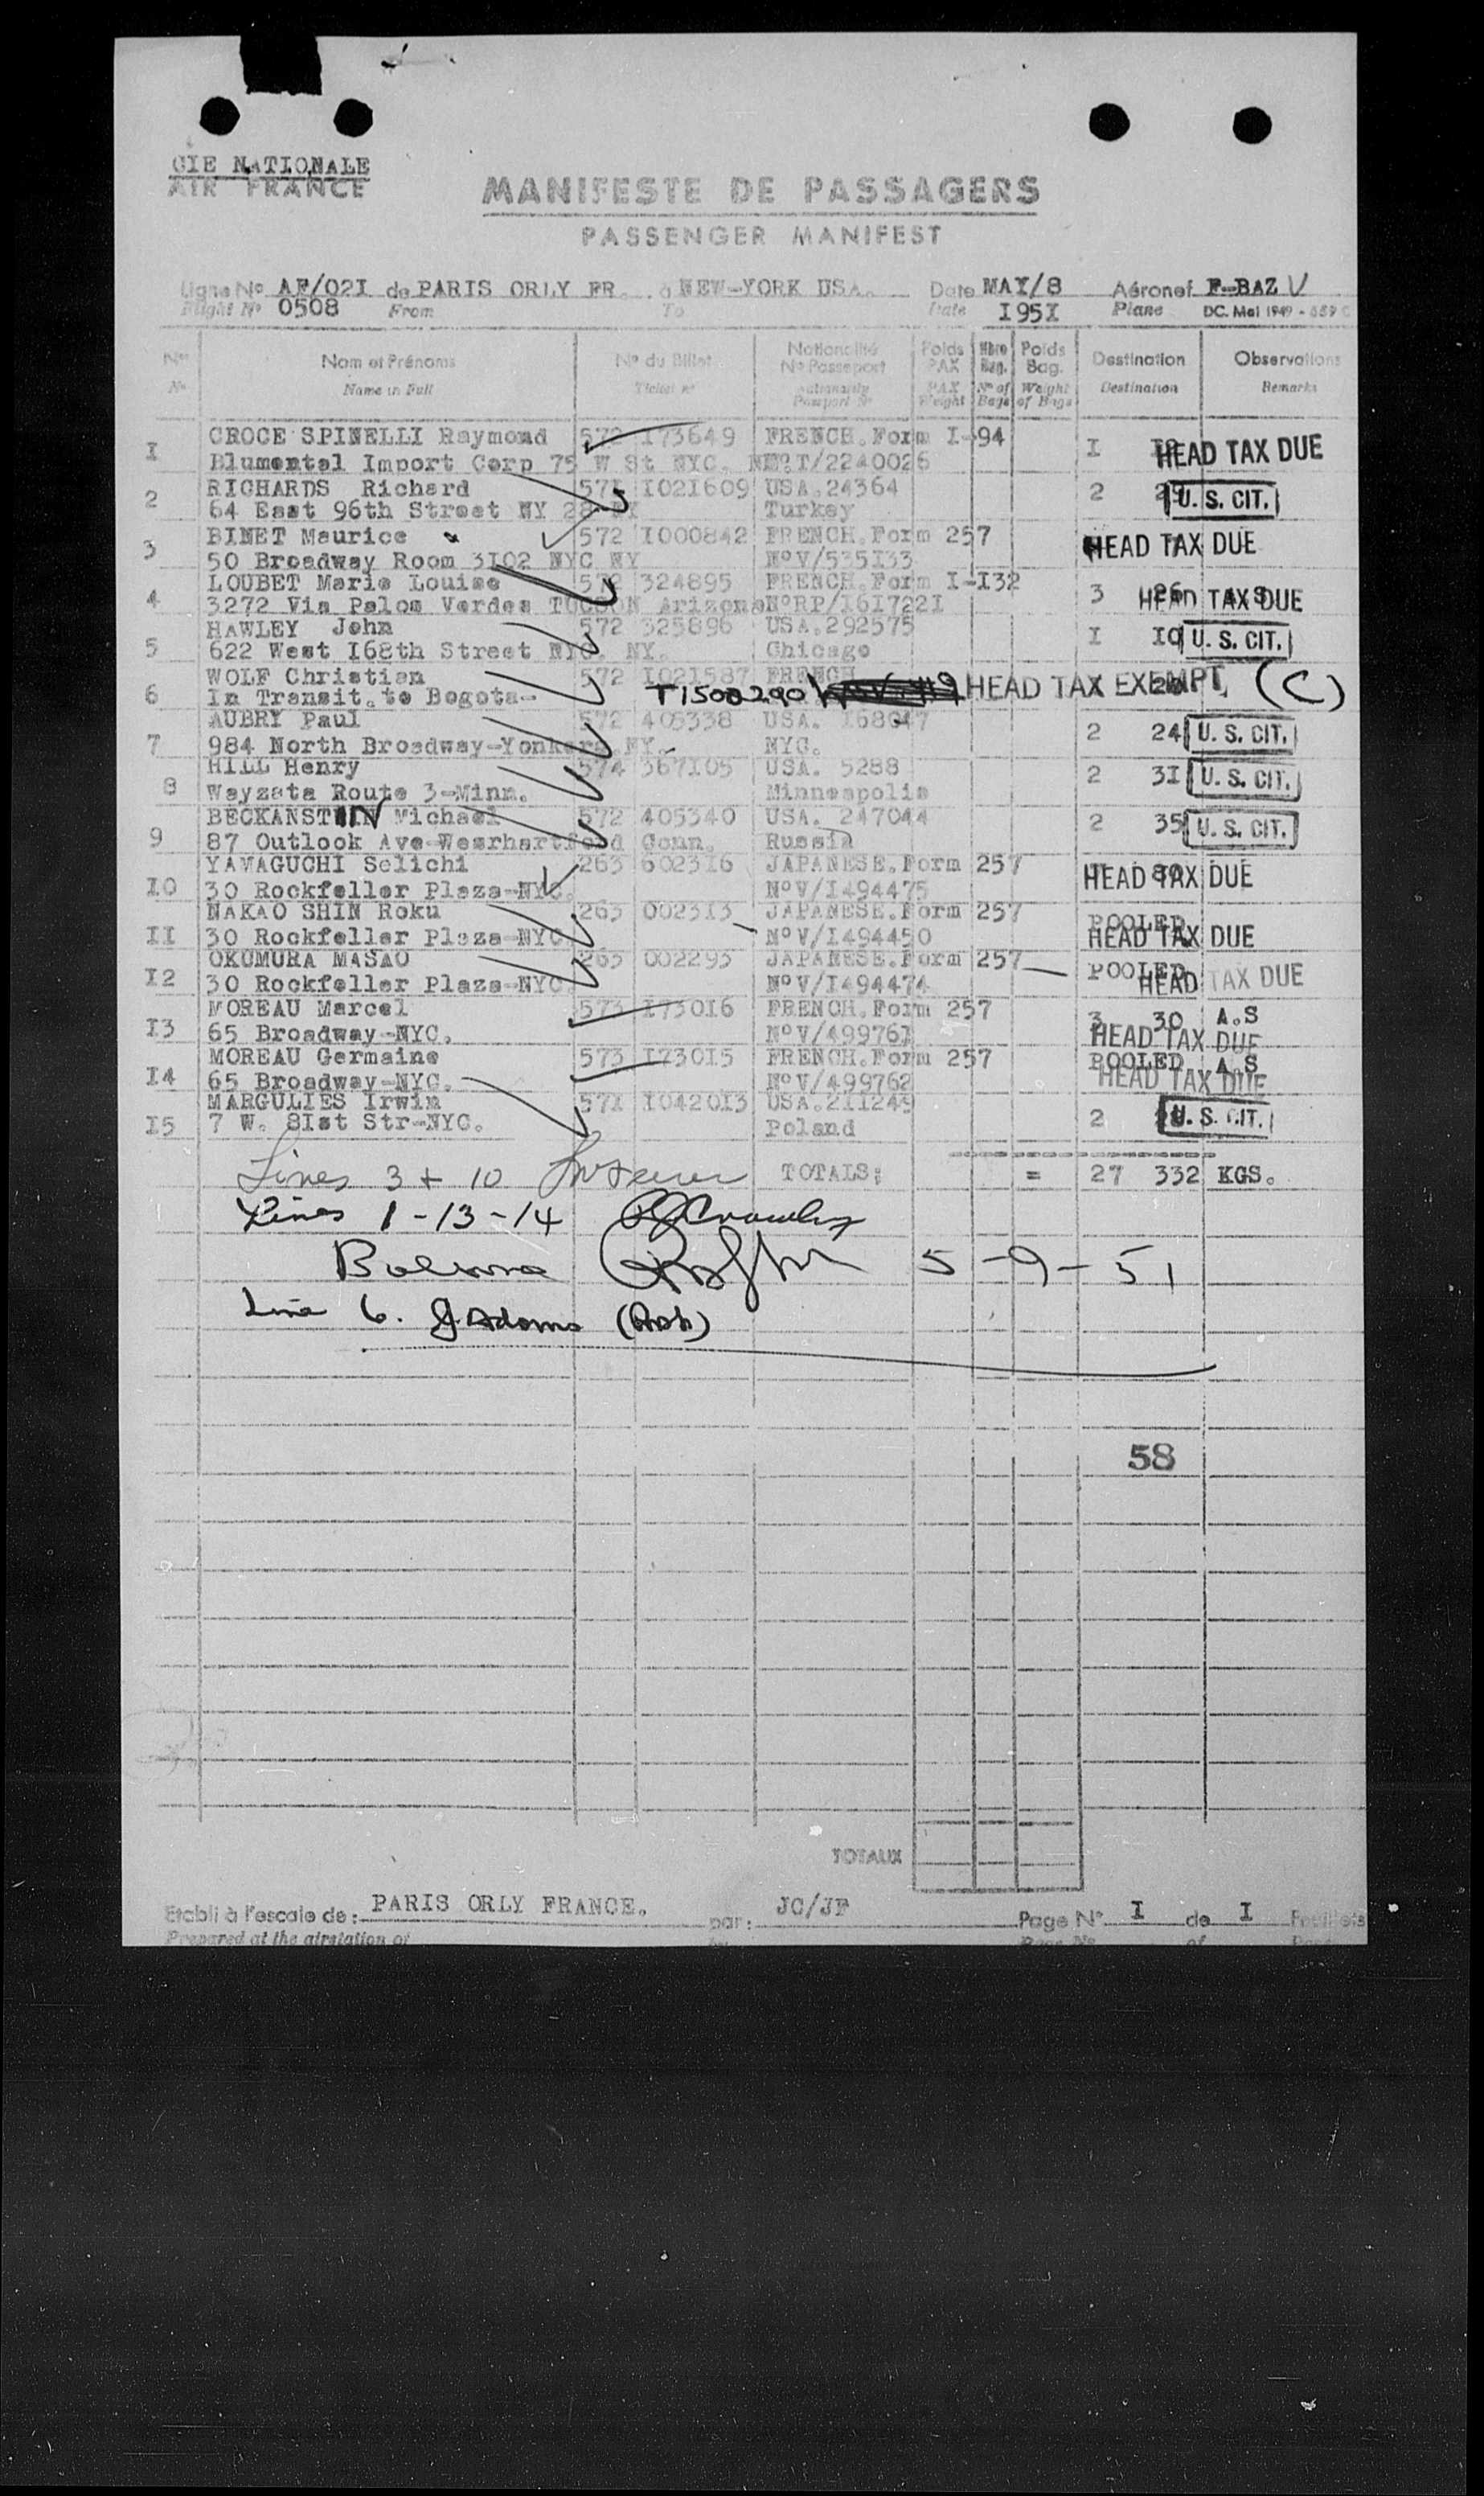 CIE NATIONALE
AIR FRANCE
MANIFESTE DE PASSAGERS
PASSENGER MANIFEST
Ligne No AF/02I de PARIS ORLY FR. à NEW-YORK USA. Date MAY/8 Aéronef F-BAZ V
Flight No 0508 From To Date I95I Plane DC. Mai 1949
No Nom et Prénoms No du Billet Nationalité No Passeport Poids PAX Nbre Bag. Poids Bag. Destination Observations
No Name in Full Ticket no Nationality Passport No PAX Weight No of Bags Weight of Bags Destination Remarks
I CROCE SPINELLI Raymond 572 I73649 FRENCH.Form I-94 I HEAD TAX DUE
Blumental Import Corp 75 W St NYC. NoT/2240026
2 RICHARDS Richard 57I I02I609 USA.24364 2 29 U. S. CIT.
64 East 96th Street NY 28 NY Turkey
3 BINET Maurice 572 I000842 FRENCH.Form 257 HEAD TAX DUE
50 Broadway Room 3I02 NYC NY NoV/535I33
4 LOUBET Marie Louise 572 324895 FRENCH.Form I-I32 3 26 HEAD TAX DUE
3272 Via Palom Verdes TUCSON Arizona NoRP/I6I722I
5 HAWLEY John 572 325896 USA.292575 I IO U. S. CIT.
622 West I68th Street NYC. NY. Chicago
6 WOLF Christian 572 I02I587 FRENCH
In Transit. to Bogota- T1508290 HEAD TAX EXEMPT (C)
7 AUBRY Paul 572 405338 USA. I68047 2 24 U. S. CIT.
984 North Broadway-Yonkers.NY. NYC.
8 HILL Henry 574 367I05 USA. 5288 2 3I U. S. CIT.
Wayzata Route 3-Minn. Minneapolis
9 BECKANSTEIN Michael 572 405340 USA. 247044 2 35 U. S. CIT.
87 Outlook Ave-Wesrhartford Conn. Russia
I0 YAMAGUCHI Selichi 263 6023I6 JAPANESE.Form 257 HEAD TAX DUE
30 Rockfeller Plaza-NYC. NoV/I494475
II NAKAO SHIN Roku 263 0023I3 JAPANESE.Form 257 POOLED
30 Rockfeller Plaza-NYC. NoV/I494450 HEAD TAX DUE
I2 OKUMURA MASAO 263 002293 JAPANESE.Form 257 POOLED
30 Rockfeller Plaza-NYC. NoV/I494474 HEAD TAX DUE
I3 MOREAU Marcel 573 I730I6 FRENCH.Form 257 3 30 A.S
65 Broadway-NYC. NoV/49976I HEAD TAX DUE
I4 MOREAU Germaine 573 I730I5 FRENCH.Form 257 POOLED A.S
65 Broadway-NYC. NoV/499762 HEAD TAX DUE
I5 MARGULIES Irwin 57I I0420I3 USA.2II245 2 U. S. CIT.
7 W. 8Ist Str-NYC. Poland
Lines 3 + 10 TOTALS: = 27 332 KGS.
Lines 1-13-14
5-9-51
Line 6. J Adams
58
TOTAUX
Etabli à l'escale de: PARIS ORLY FRANCE. par: JC/JF Page No I de I Feuillets
Prepared at the airstation of by Page No of